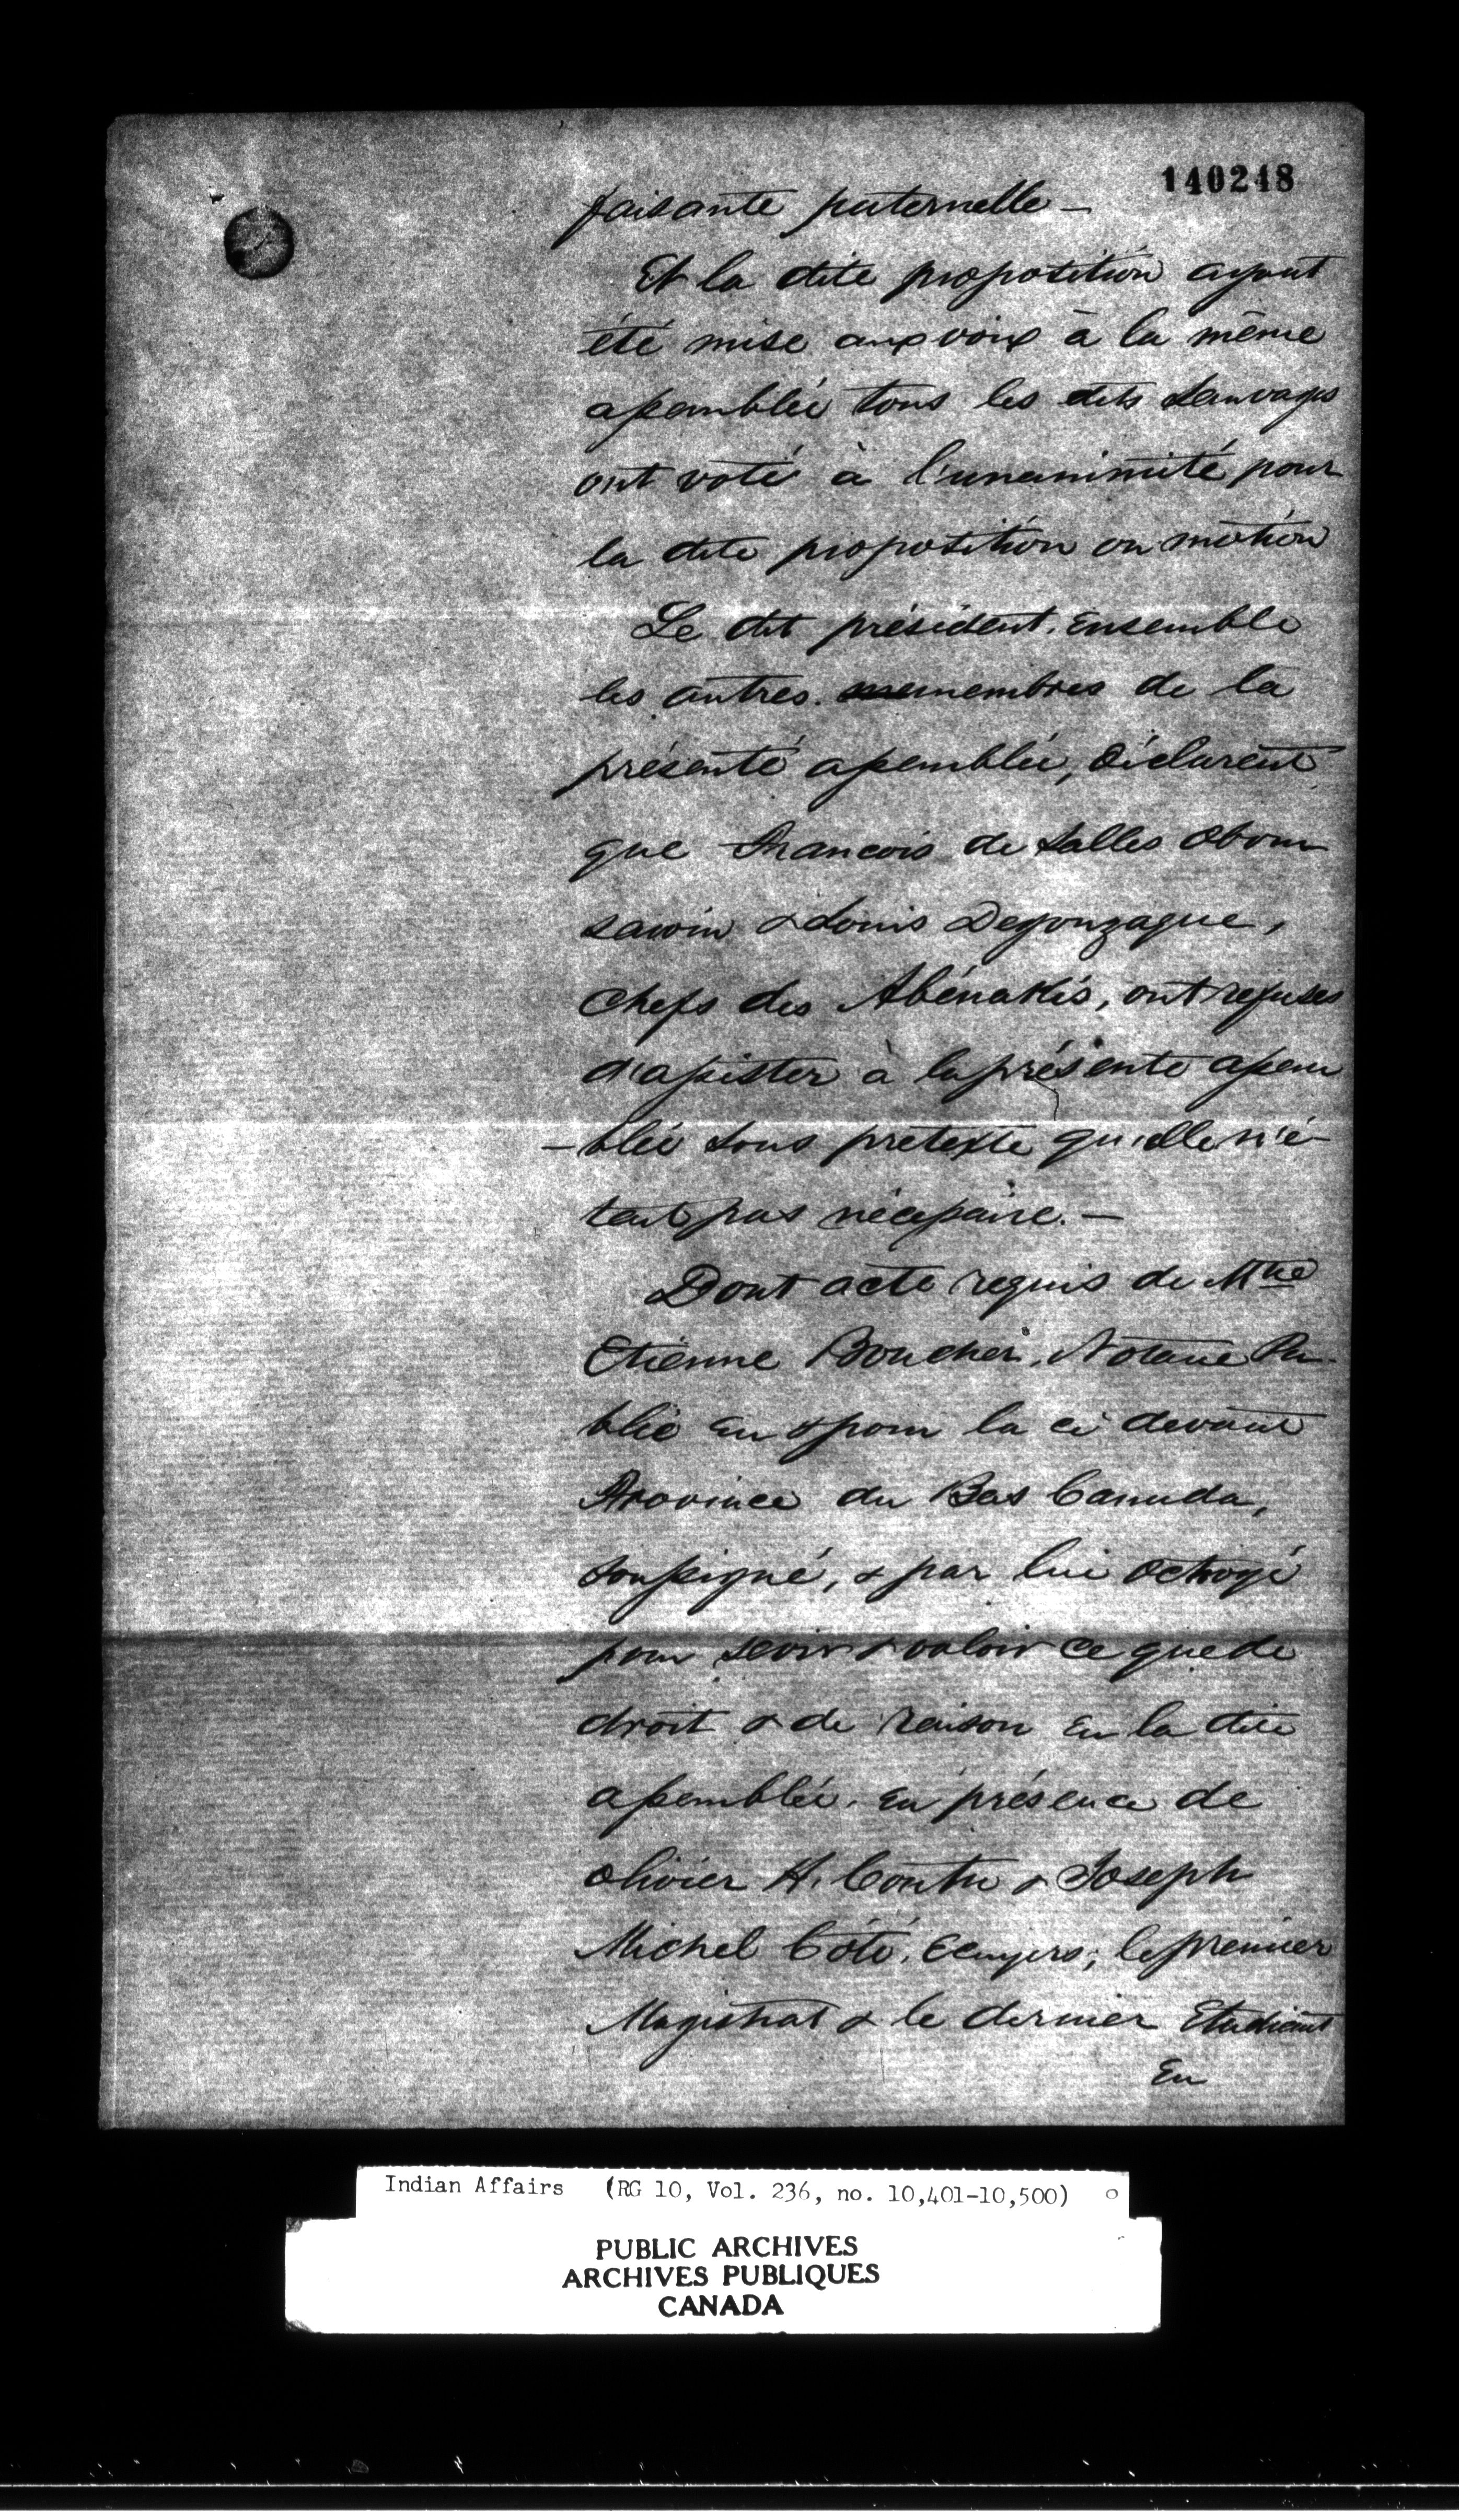 140248
faisante paternelle —
Et la dite proposition ayant
été mise aux voix à la même
assemblée tous les dits Sauvages
ont voté à l'unanimité pour
la dite proposition ou motion
Le dit président, ensemble
les autres membres de la
présente assemblée, déclarent
que Francois de Salles Obom
sawin & Louis Degonzague,
Chefs des Abénakis, ont refusés
d'assister à la présente assem
-blée sous pretexte qu'elle n'é-
tait pas nécessaire. —
Dont acte requis de Mtre
Etienne Boucher, Notaire Pu-
blic en & pour la ci devant
Province du Bas Canada,
soussigné, & par lui octroyé
pour servir & valoir ce que de
droit & de raison en la dite
assemblée, en présence de
Olivier H. Coutu & Joseph
Michel Côté, Ecuyers, le premier
Magistrat & le dernier Etudiant
En
Indian Affairs (RG 10, Vol. 236, no. 10,401-10,500)
PUBLIC ARCHIVES
ARCHIVES PUBLIQUES
CANADA